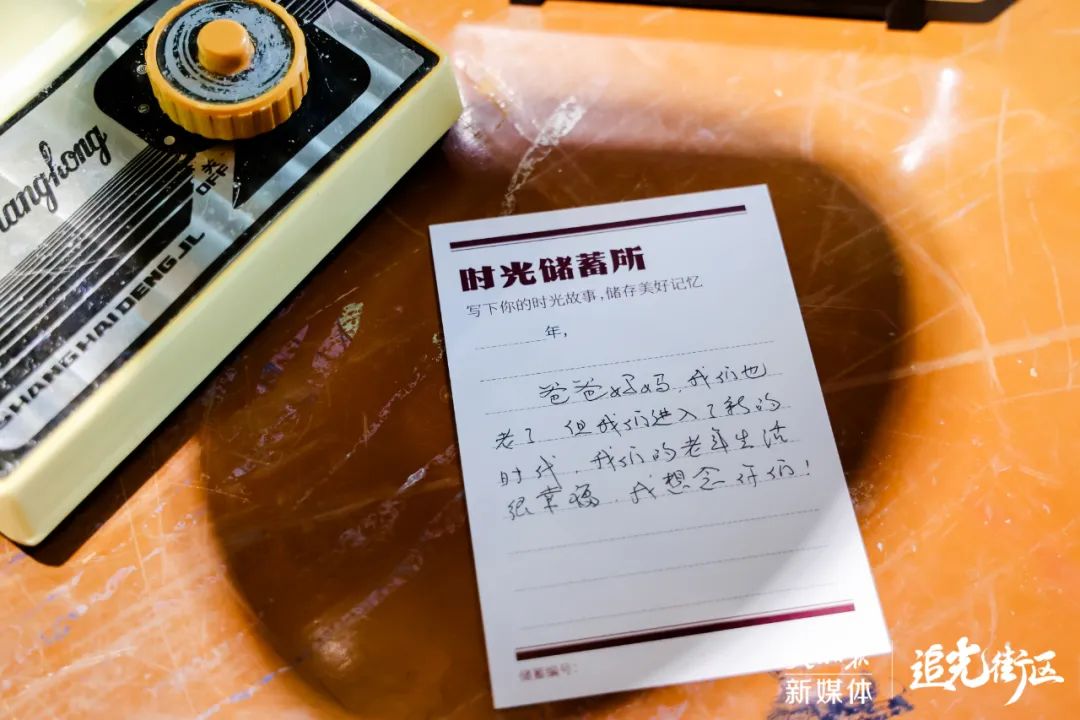 时光储蓄所
写下你的时光故事,储存美好记忆
年,
爸爸妈妈,我们也
老了 但我们进入了新的
时代,我们的老年生活
很幸福,我想念你们!
储蓄编号:
SHANGHAIDENGJL
新媒体
追光街区